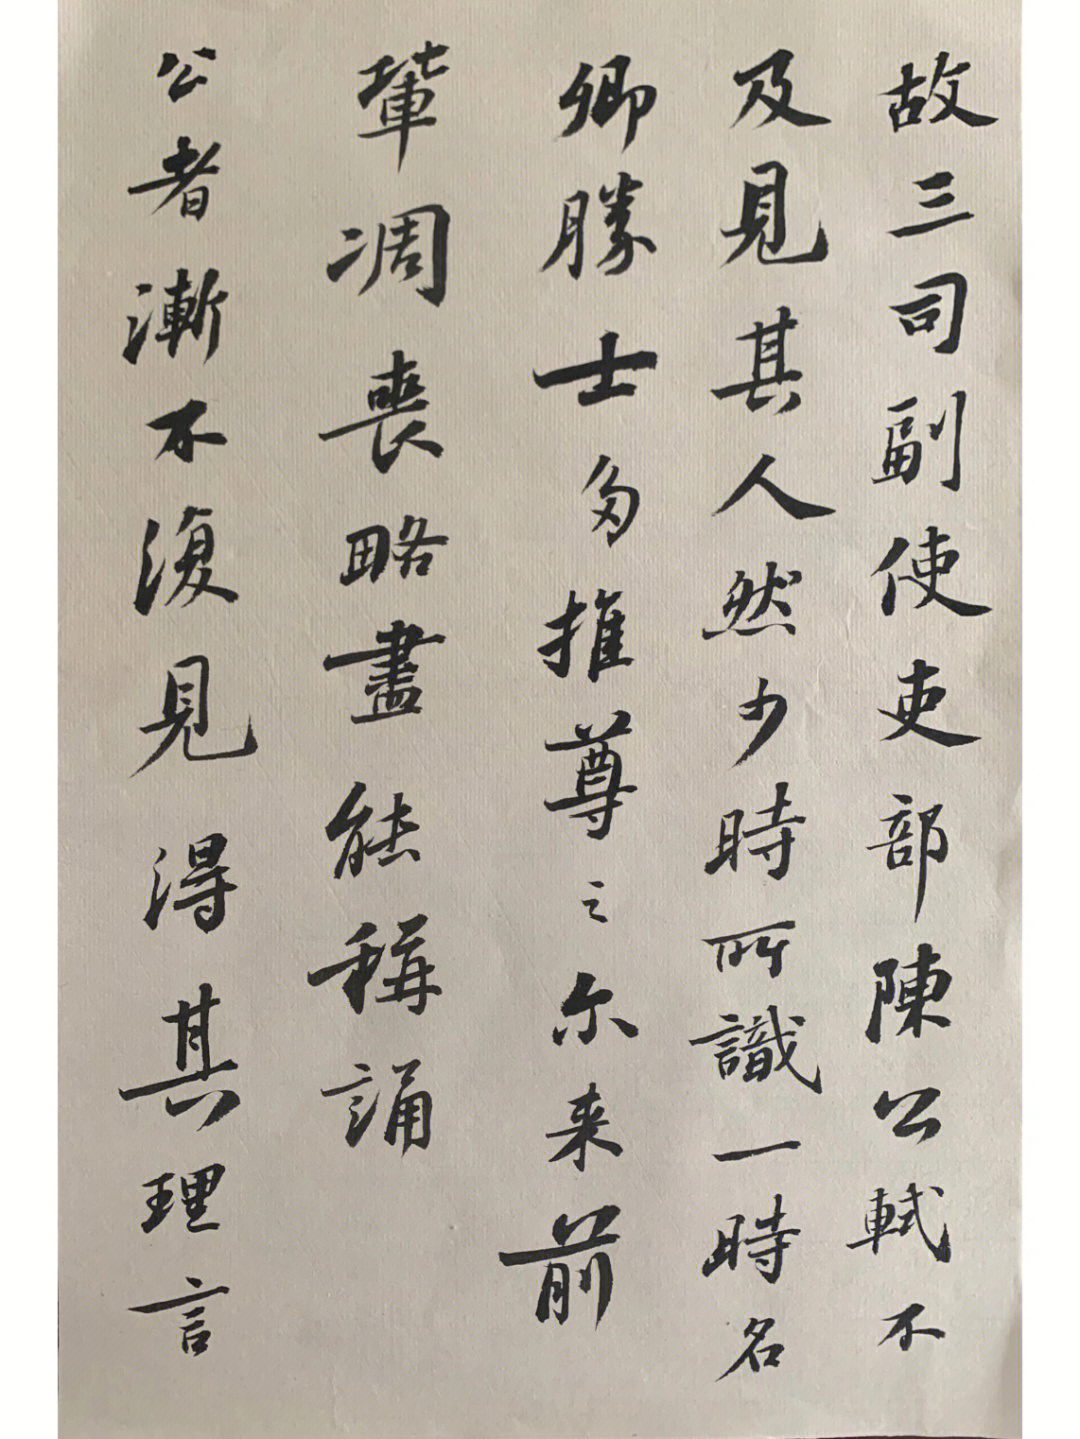 故三司副使吏部陳公軾不
及見其人然少時所識一時名
卿勝士多推尊之尔来前
輩凋喪略盡能稱誦
公者漸不復見得其理言